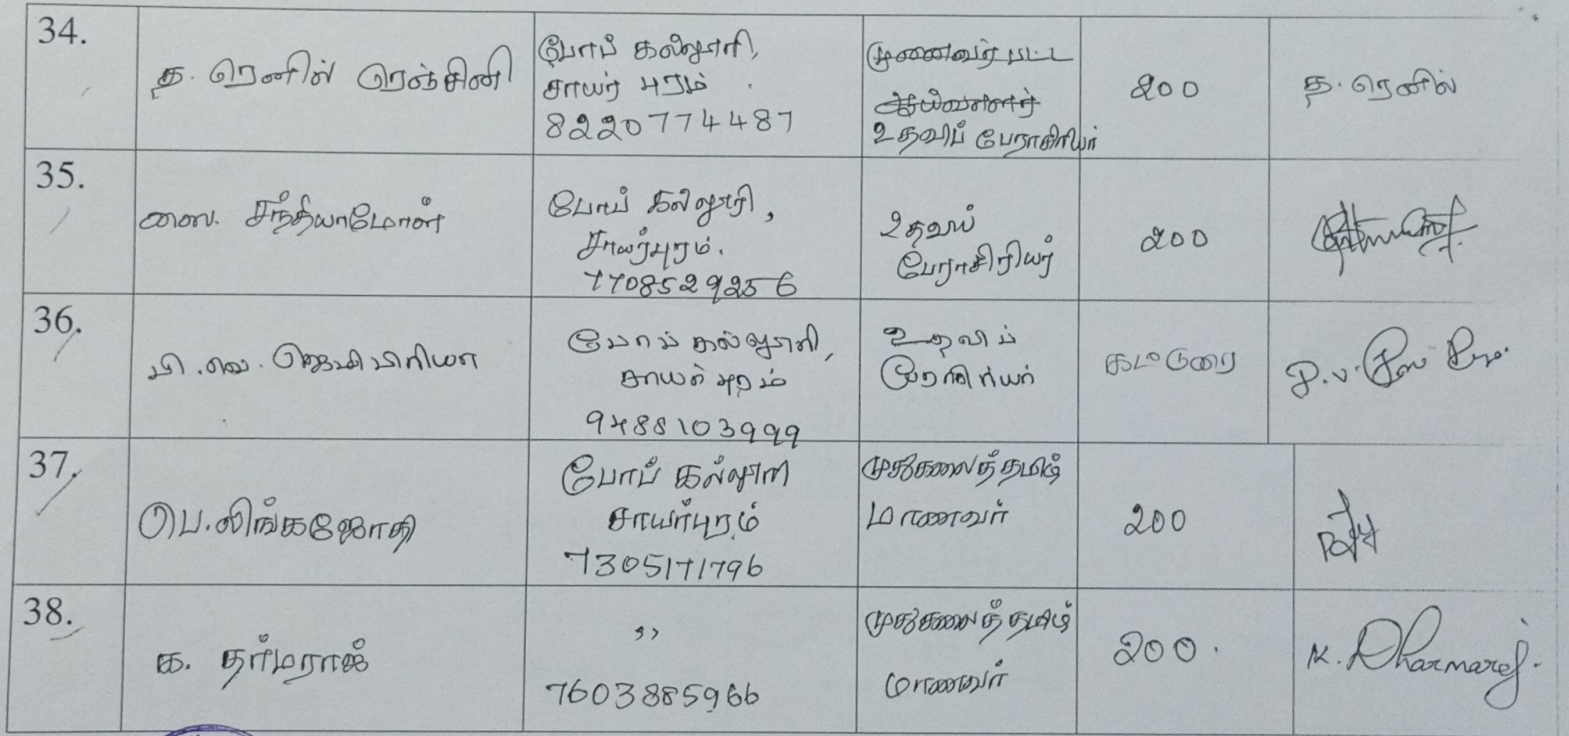 34.
த. ரெனில் ரெஞ்சினி
போப் கல்லூரி,
சாயர் புரம்
8220774487
முனைவர் பட்ட
ஆய்வாளார்
உதவிப் பேராசிரியர்
200
த. ரெனில்
35.
வை. சந்தியாமோள்
போப் கல்லூரி,
சாயர்புரம்.
7708529256
உதவிப்
பேராசிரியர்
200
36.
பி.வெ. ஜெபி பிரியா
போப் கல்லூரி,
சாயர் புரம்
9488103999
உதவிப்
பேராசிரியர்
கட்டுரை
P.V.
37.
பெ.லிங்கஜோதி
போப் கல்லூரி
சாயர்புரம்
7305171796
முதுகலைத் தமிழ்
மாணவர்
200
38.
க. தர்மராஜ்
,,
7603885966
முதுகலைத் தமிழ்
மாணவர்
200.
K. Dharmaraj.